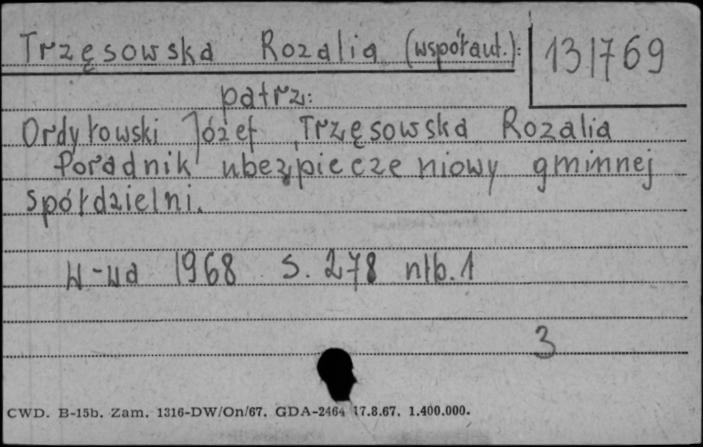 Trzęsowska Rozalia (współaut.): 131769
patrz:
Ordyłowski Józef, Trzęsowska Rozalia
Poradnik ubezpieczeniowy gminnej
spółdzielni.
W-wa 1968 S. 278 nlb. 1
3
CWD. B-15b. Zam. 1316-DW/On/67. GDA-2464 17.8.67. 1.400.000.